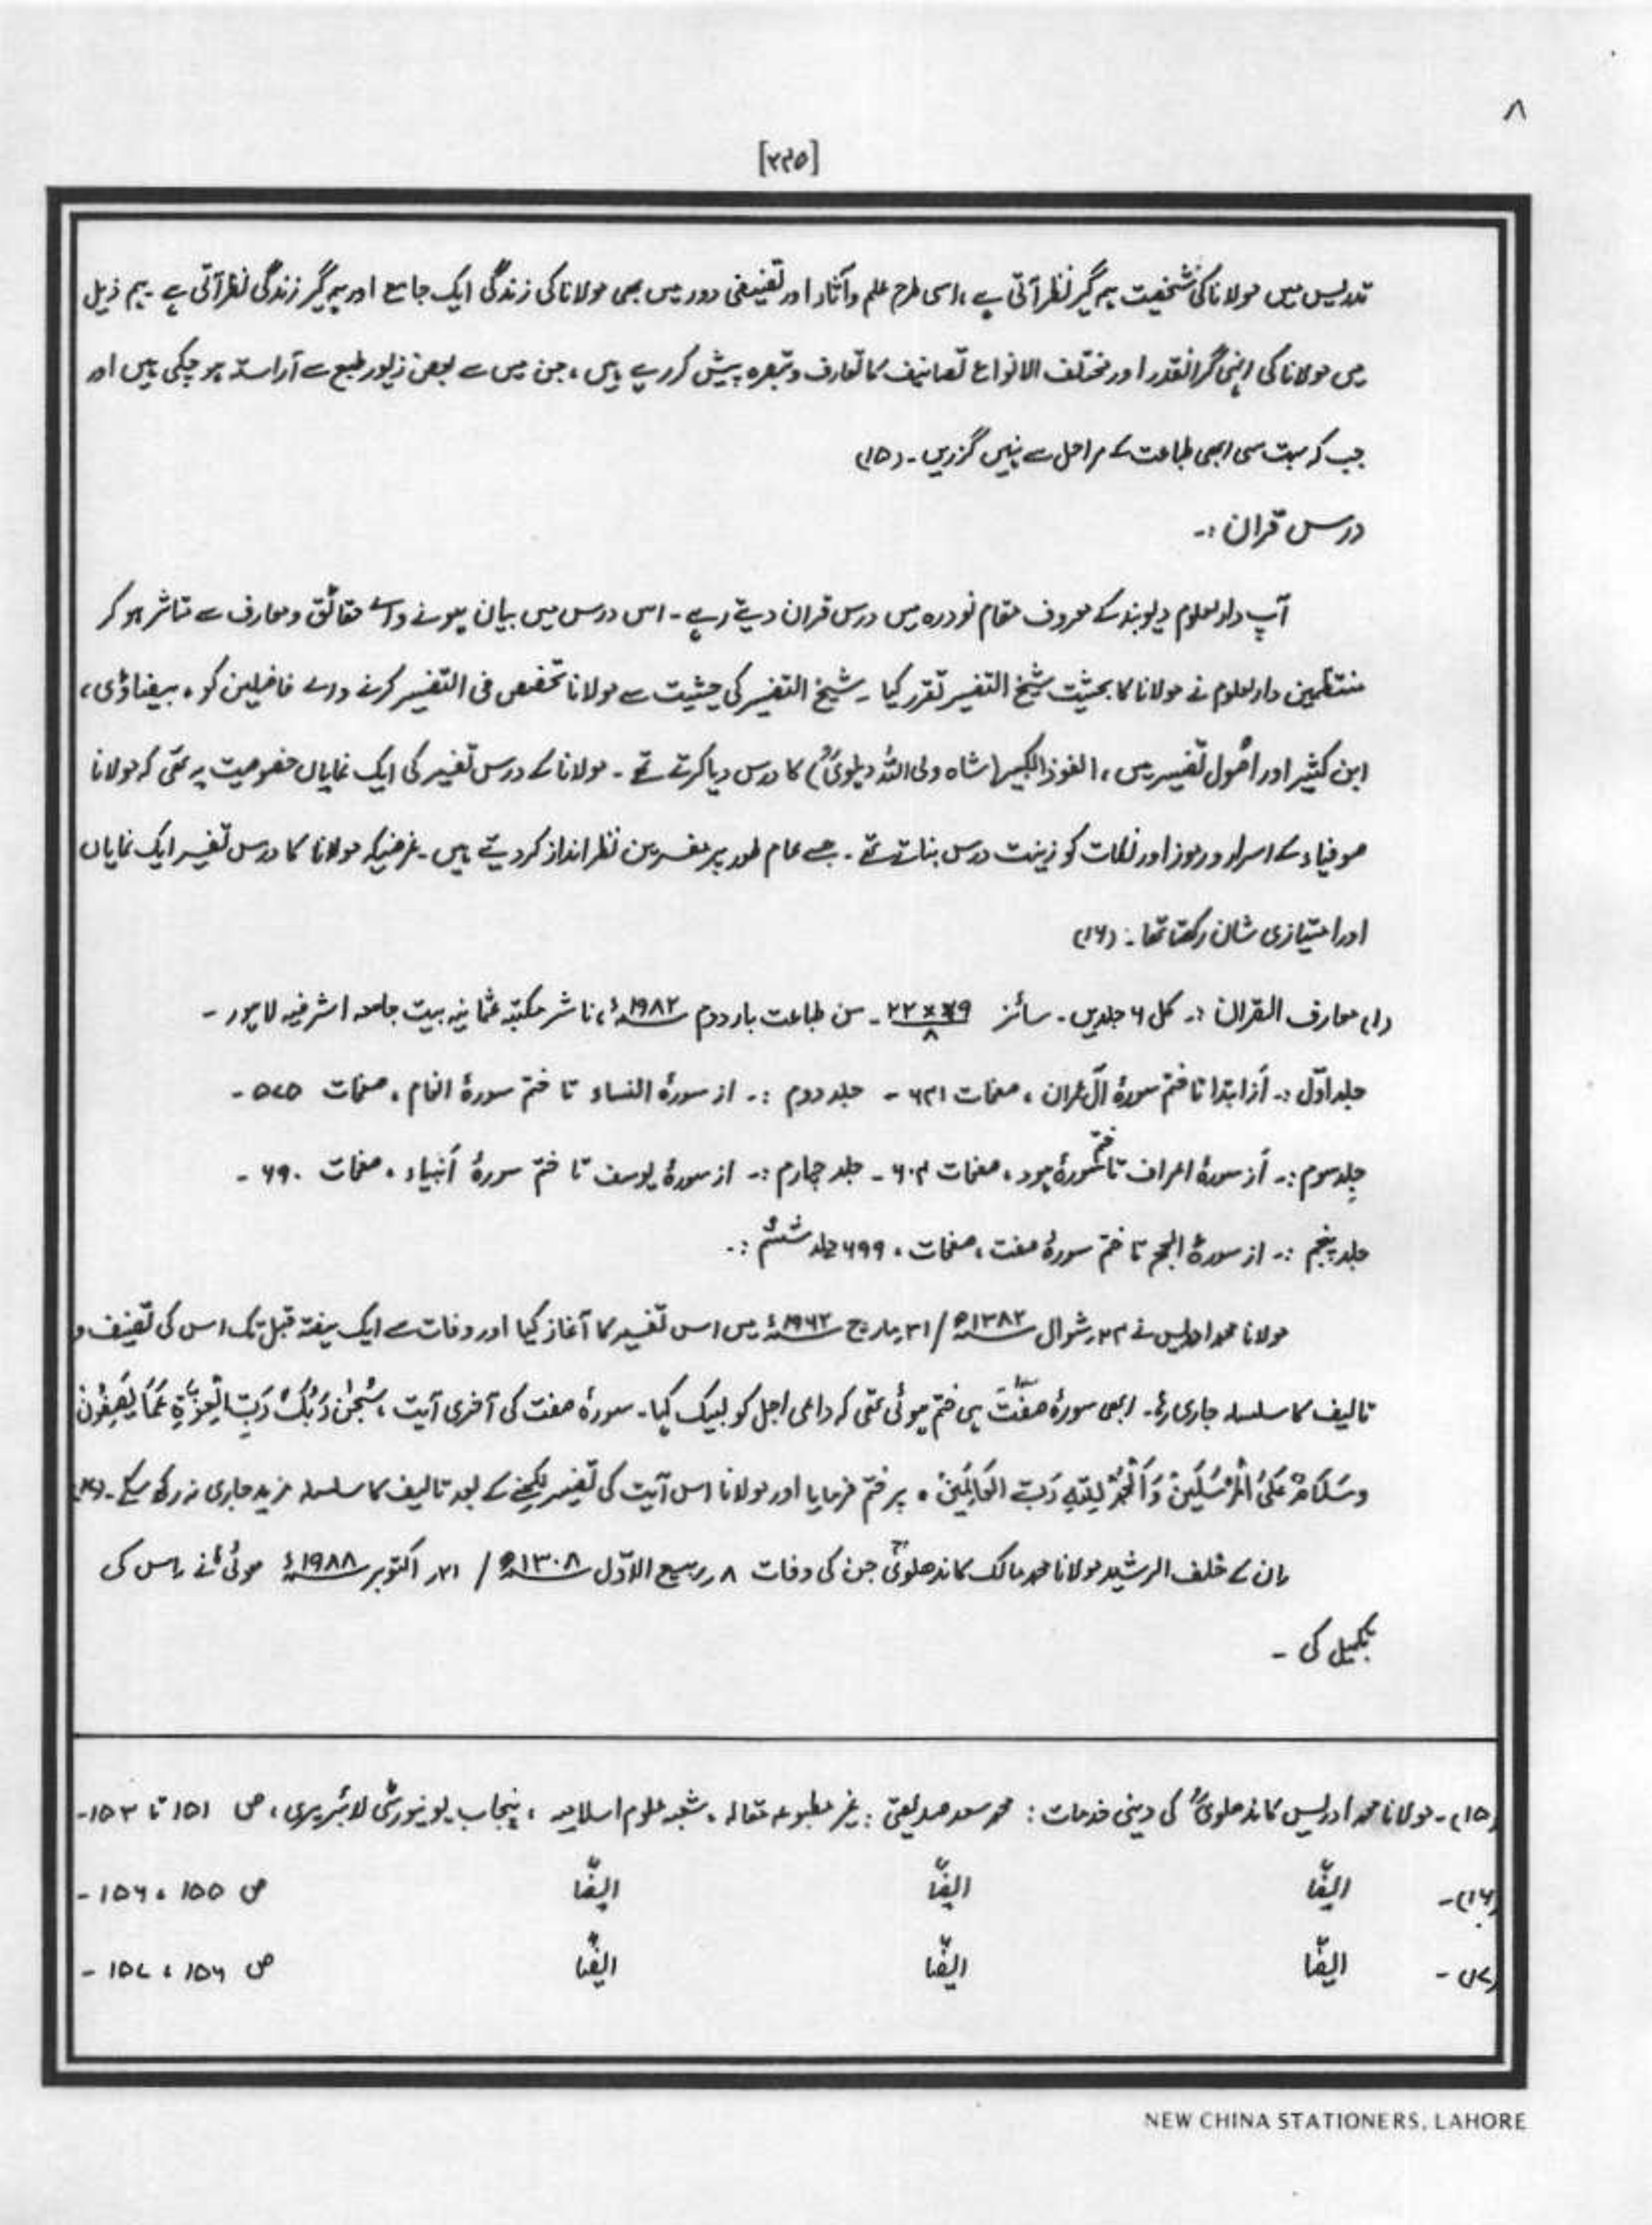 ۸
[۲۲۵]
تدریس میں مولانا کی شخصیت ہمہ گیر نظر آتی ہے، اسی طرح علم و آثار اور تصنیفی دور میں بھی مولانا کی زندگی ایک جامع اور ہمہ گیر زندگی نظر آتی ہے۔ ہم ذیل
میں مولانا کی اپنی گرانقدر اور مختلف الانواع تصانیف کا تعارف و تبصرہ پیش کر رہے ہیں، جن میں سے بعض زیور طبع سے آراستہ ہو چکی ہیں اور
جب کہ بہت سی ابھی طباعت کے مراحل سے نہیں گزریں۔ (۱۵)
درس قران :۔
آپ دارلعلوم دیوبند کے معروف مقام نودرہ میں درس قران دیتے رہے۔ اس درس میں بیان ہونے والے حقائق و معارف سے متاثر ہو کر
منتظمین دارلعلوم نے مولانا کا بحیثیت شیخ التفسیر تقرر کیا۔ شیخ التفسیر کی حیثیت سے مولانا تخصص فی التفسیر کرنے والے فاضلین کو، بیضاوی،
ابن کثیر اور اصول تفسیر میں، الفوز الکبیر (شاہ ولی اللہ دہلویؒ) کا درس دیا کرتے تھے۔ مولانا کے درس تفسیر کی ایک نمایاں خصوصیت یہ تھی کہ مولانا
صوفیاء کے اسرار و رموز اور نکات کو زینت درس بناتے تھے۔ جسے عام طور پر مفسرین نظر انداز کر دیتے ہیں۔ غرضیکہ مولانا کا درس تفسیر ایک نمایاں
اور امتیازی شان رکھتا تھا۔ (۱۶)
(۱) معارف القران :۔ کل ۶ جلدیں۔ سائز ۲۲×۲۹/۸ ۔ سن طباعت بار دوم ۱۹۸۲ء، ناشر مکتبہ عثمانیہ بیت جامعہ اشرفیہ لاہور ۔
جلد اوّل :۔ از ابتدا تا ختم سورۂ آل عمران، صفحات ۶۳۱ ۔ جلد دوم :۔ از سورۂ النساء تا ختم سورۂ انعام، صفحات ۵۷۵ ۔
جلد سوم :۔ از سورۂ اعراف تا ختم سورۂ ہود، صفحات ۶۰۴ ۔ جلد چہارم :۔ از سورۂ یوسف تا ختم سورۂ أنبیاء، صفحات ۶۹۰ ۔
جلد پنجم :۔ از سورۂ الحج تا ختم سورۂ صفت، صفحات، ۶۹۹ جلد ششم :۔
مولانا محمد ادریس نے ۲۴؍ شوال ۱۳۸۲ھ / ۲۱؍ مارچ ۱۹۶۳ء میں اس تفسیر کا آغاز کیا اور وفات سے ایک ہفتہ قبل تک اس کی تصنیف و
تالیف کا سلسلہ جاری رہا۔ ابھی سورۂ صفّت ہی ختم ہوئی تھی کہ داعی اجل کو لبیک کہا۔ سورۂ صفت کی آخری آیت، سُبحٰنَ رَبِّکَ رَبِّ الْعِزَّةِ عَمَّا یَصِفُونَ
وَسَلَامٌ عَلَی الْمُرْسَلِینَ وَالْحَمْدُ لِلّٰهِ رَبِّ الْعَالَمِینَ ہ پر ختم فرمایا اور مولانا اس آیت کی تفسیر لکھنے کے بعد تالیف کا سلسلہ مزید جاری نہ رکھ سکے۔ (۱۷)
ان کے خلف الرشید مولانا محمد مالک کاندھلویؒ جن کی وفات ۸؍ ربیع الاوّل ۱۴۰۸ھ / ۲۱؍ اکتوبر ۱۹۸۸ء ہوئی نے اس کی
تکمیل کی ۔
(۱۵)۔ مولانا محمد ادریس کاندھلویؒ کی دینی خدمات : محمد سعد صدیقی : غیر مطبوعہ مقالہ، شعبہ علوم اسلامیہ، پنجاب یونیورسٹی لائبریری، ص ۱۵۱ تا ۱۵۳۔
(۱۶)۔ ایضًا ایضًا ایضًا ص ۱۵۵، ۱۵۶ ۔
(۱۷)۔ ایضًا ایضًا ایضًا ص ۱۵۶، ۱۵۷ ۔
NEW CHINA STATIONERS, LAHORE